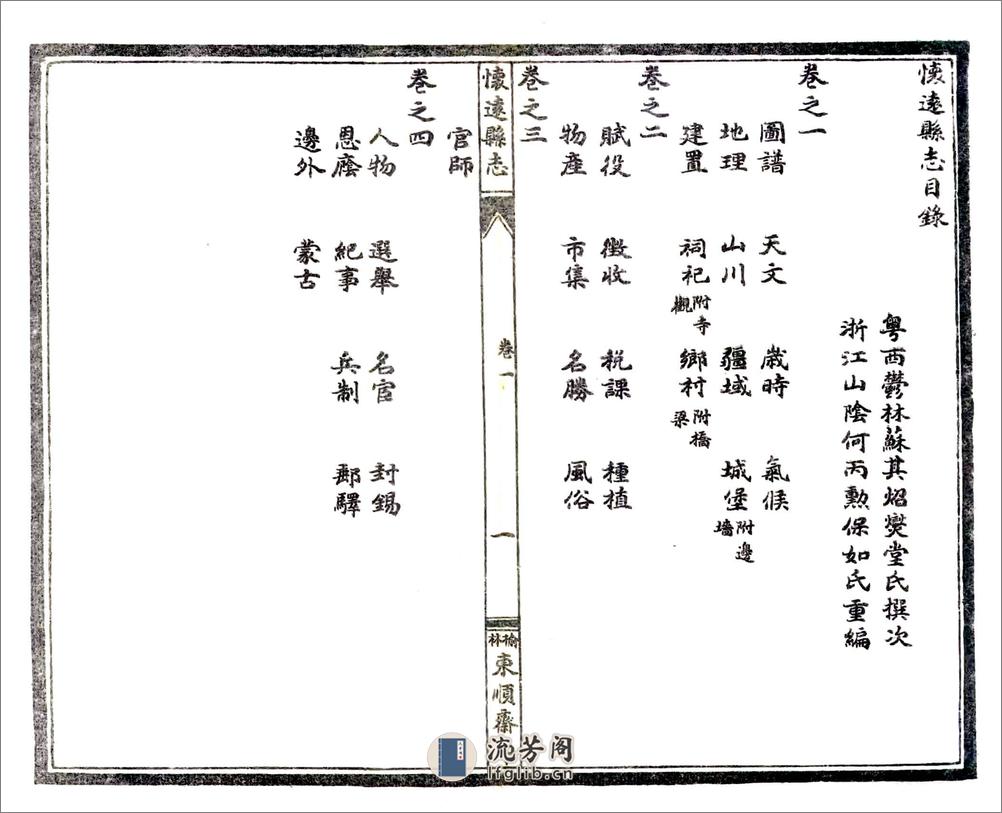 懷遠縣志目錄
粤西鬱林蘇其炤爕堂氏撰次
浙江山陰何丙勲保如氏重編
卷之一
圖譜 天文 歲時 氣候
地理 山川 疆域 城堡 附邊墻
建置 祠祀 附寺觀 鄉村 附橋梁
卷之二
賦役 徵收 稅課 種植
物產 市集 名勝 風俗
卷之三
懷遠縣志 卷一 一 榆林東順齋
官師
卷之四
人物 選舉 名宦 封錫
恩廕 紀事 兵制 郵驛
邊外 蒙古
流芳阁
lfglib.cn